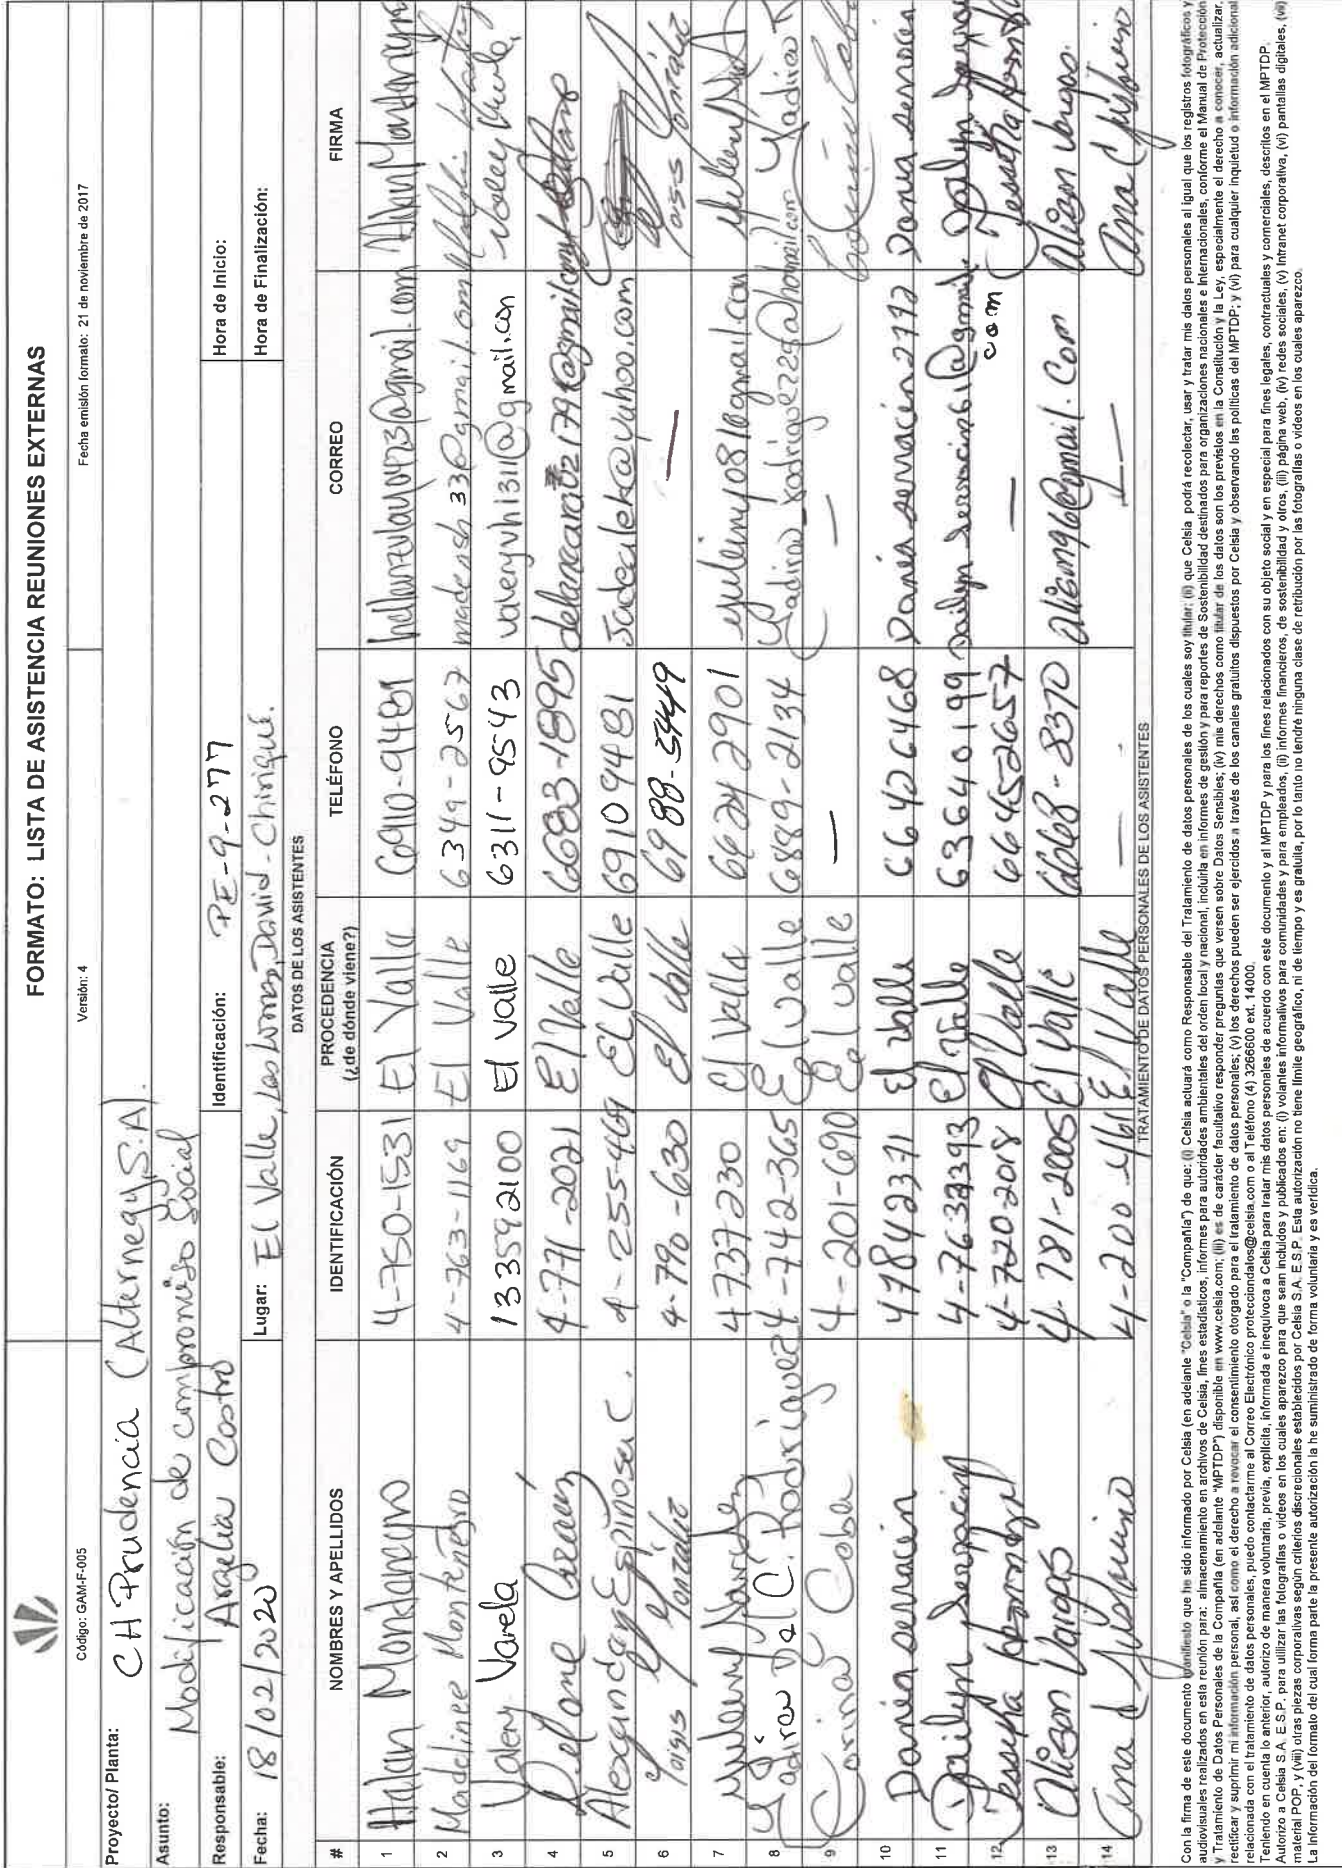 FORMATO: LISTA DE ASISTENCIA REUNIONES EXTERNAS
Código: GAM-F-005 Versión: 4 Fecha emisión formato: 21 de noviembre de 2017
Proyecto/ Planta: CH Prudencia (Alternegy, S.A).
Asunto: Modificación de compromiso Social
Responsable: Argelia Castro Identificación: PE-9-277 Hora de Inicio:
Fecha: 18/02/2020 Lugar: El Valle, Las Lomas, David - Chiriquí. Hora de Finalización:
DATOS DE LOS ASISTENTES
# NOMBRES Y APELLIDOS IDENTIFICACIÓN PROCEDENCIA (¿de dónde viene?) TELÉFONO CORREO FIRMA
1 4-750-1531 El Valle
2 Madelinee Montenegro 4-763-1169 El Valle 6349-2567 madensh33@gmail.com
3 Valery Varela 1 3359 2100 El valle 6311-9543 valeryvh1311@gmail.com
4 4-771-2021 El Valle 6683-1895
5 Espinosa C. 4-255-469 El Valle 69109481 Jadealek@yahoo.com
6 González 4-790-630 El Valle 6988-5449 —
7 4737230 El Valle 66242901
8 Yadira Del C. Rodriguez 4-742-365 El valle 6889-2134
9 Corina Coba 4-201-690 El valle — —
10 Dania serracin 47842371 El valle 66426468 Dania serracin2772 Dania serracin
11 Dailyn Serracin 4-763-2393 El Valle 63640199
12 4-720-2018 El Valle 66452657 —
13 Alison Vargas 4-781-2005 El Valle 6668-8370 Alison Vargas
14 Ana 4-200-461 El Valle — —
TRATAMIENTO DE DATOS PERSONALES DE LOS ASISTENTES
Con la firma de este documento manifiesto que he sido informado por Celsia (en adelante "Celsia" o la "Compañía") de que: (i) Celsia actuará como Responsable del Tratamiento de datos personales de los cuales soy titular; (ii) que Celsia podrá recolectar, usar y tratar mis datos personales al igual que los registros fotográficos y
audiovisuales realizados en esta reunión para: almacenamiento en archivos de Celsia, fines estadísticos, informes para autoridades ambientales del orden local y nacional, incluirla en informes de gestión y para reportes de Sostenibilidad destinados para organizaciones nacionales e Internacionales, conforme el Manual de Protección
y Tratamiento de Datos Personales de la Compañía (en adelante "MPTDP") disponible en www.celsia.com; (iii) es de carácter facultativo responder preguntas que versen sobre Datos Sensibles; (iv) mis derechos como titular de los datos son los previstos en la Constitución y la Ley, especialmente el derecho a conocer, actualizar,
rectificar y suprimir mi información personal, así como el derecho a revocar el consentimiento otorgado para el tratamiento de datos personales; (v) los derechos pueden ser ejercidos a través de los canales gratuitos dispuestos por Celsia y observando las políticas del MPTDP; y (vi) para cualquier inquietud o información adicional
relacionada con el tratamiento de datos personales, puedo contactarme al Correo Electrónico protecciondatos@celsia.com o al Teléfono (4) 3266600 ext. 14000.
Teniendo en cuenta lo anterior, autorizo de manera voluntaria, previa, explícita, informada e inequívoca a Celsia para tratar mis datos personales de acuerdo con este documento y al MPTDP y para los fines relacionados con su objeto social y en especial para fines legales, contractuales y comerciales, descritos en el MPTDP.
Autorizo a Celsia S.A. E.S.P. para utilizar las fotografías o videos en los cuales aparezco para que sean incluidos y publicados en: (i) volantes informativos para comunidades y para empleados, (ii) informes financieros, de sostenibilidad y otros, (iii) página web, (iv) redes sociales, (v) Intranet corporativa, (vi) pantallas digitales, (vii)
material POP, y (viii) otras piezas corporativas según criterios discrecionales establecidos por Celsia S.A. E.S.P. Esta autorización no tiene límite geográfico, ni de tiempo y es gratuita, por lo tanto no tendré ninguna clase de retribución por las fotografías o videos en los cuales aparezco.
La Información del formato del cual forma parte la presente autorización la he suministrado de forma voluntaria y es verídica.